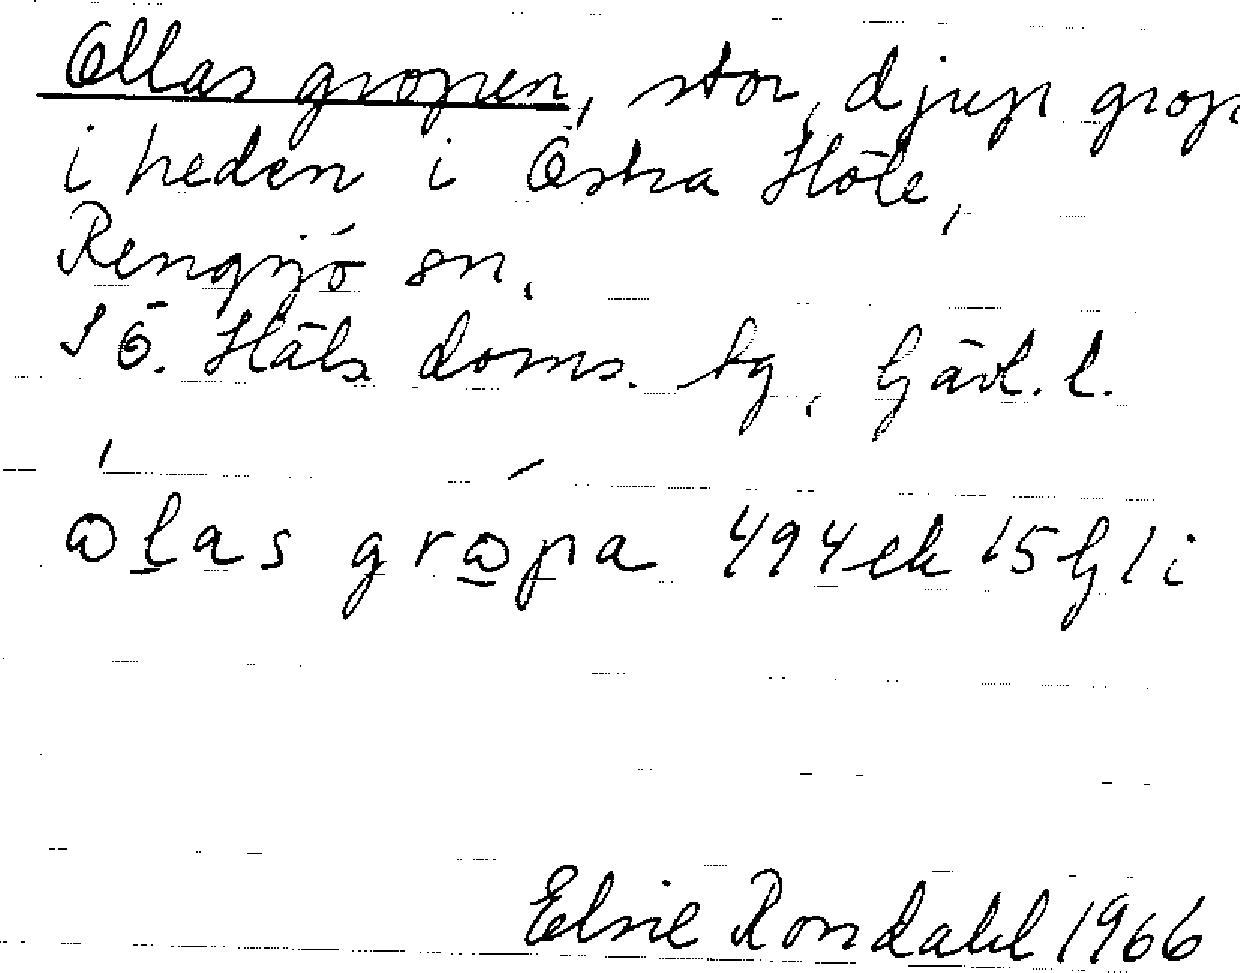 Ollas gropen, stor, djup grop
i heden i Östra Höle,
Rengsjö sn.
SÖ. Häls doms. tg, Gävl. l.
ɷlas grɷpa 494ek 15 G 1 i
Elsie Rondahl 1966